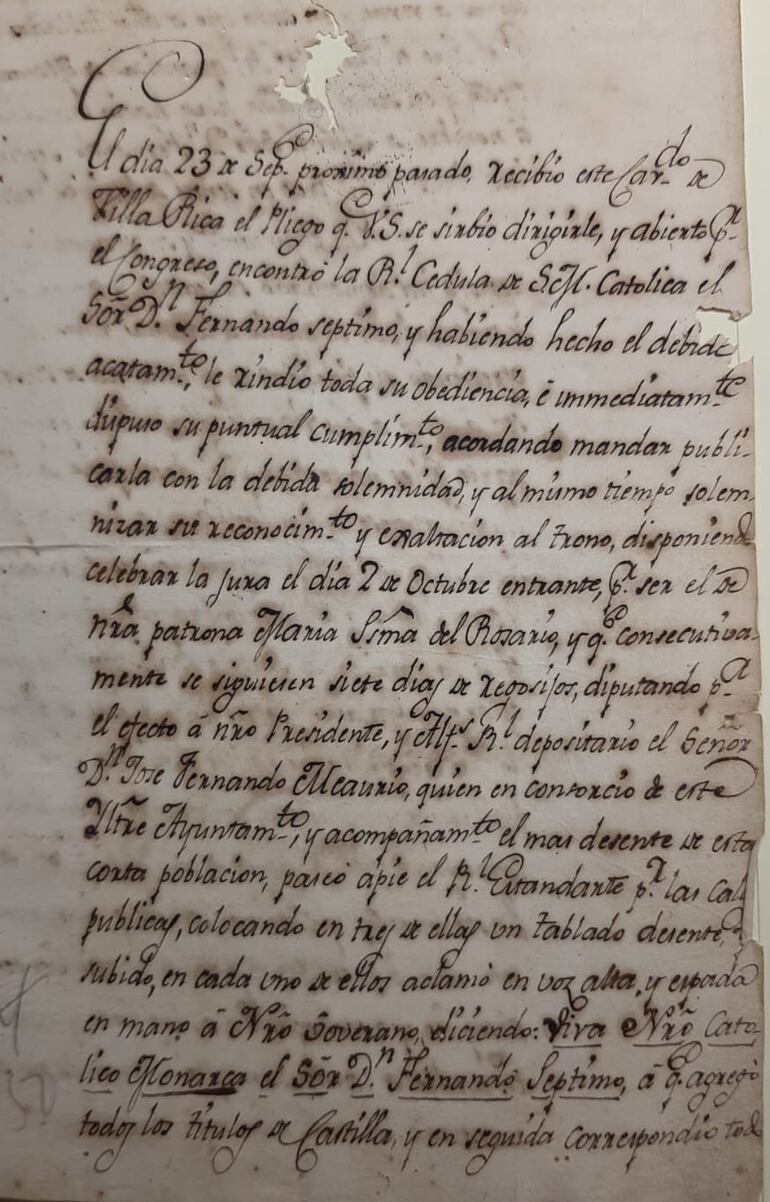 El dia 23 de Sepe. proximo pasado, recibio este Cavdo. de
Villa Rica el Pliego qe. V.S. se sirbió dirigirle, y abierto pr.
el Congreso, encontró la Rl. Cedula de S.M. Catolica el
Sõr Dn. Fernando septimo, y habiendo hecho el debido
acatamto., le rindió toda su obediencia, é immediatamte.
dispuso su puntual cumplimto., acordando mandar publi-
carla con la debida solemnidad, y al mismo tiempo solem-
nizar su reconocimto. y exaltacion al trono, disponiendo
celebrar la jura el dia 2 de Octubre entrante, pr. ser el de
nrã patrona Maria Ssmã del Rosario, y qe. consecutiva-
mente se siguiesen siete dias de regosijos, diputando pa.
el efecto á nrõ Presidente, y Alfs. Rl. depositario el Señor
Dn. Jose Fernando Meaurio, quien en consorcio de este
Yltrẽ Ayuntamto., y acompañamto. el mas desente de esta
corta poblacion, paseó apie el Rl. Estandarte pr. las cal
publicas, colocando en tres de ellas un tablado desente, y
subido, en cada uno de ellos aclamó en voz alta, y espada
en mano á Nrõ Soverano, diciendo: Viva Nrõ Cato-
lico Monarca el Sõr Dn. Fernando Septimo, á qe. agregó
todos los titulos de Castilla, y en seguida correspondio tod